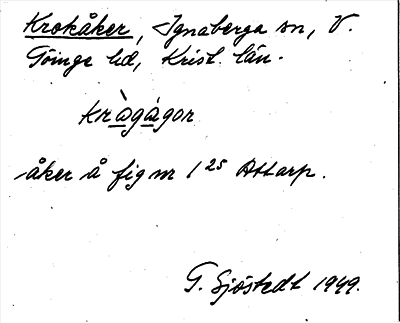 Krokåker, Ignaberga sn, V.
Göinge hd, Krist. län.
kràgágor
åker å fig nr 1²⁵ Attarp.
G. Sjöstedt 1949.